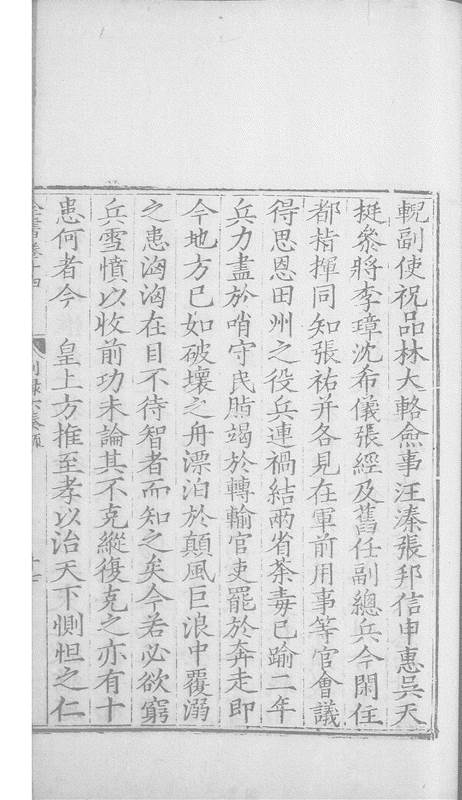 輗副使祝品林大輅僉事汪溱張邦信申惠吳天
挺參將李璋沈希儀張經及舊任副總兵今閑住
都指揮同知張祐并各見在軍前用事等官會議
得思恩田州之役兵連禍結兩省荼毒已踰二年
兵力盡於哨守民脂竭於轉輸官吏罷於奔走即
今地方已如破壞之舟漂泊於顛風巨浪中覆溺
之患洶洶在目不待智者而知之矣今若必欲窮
兵雪憤以收前功未論其不克縱復克之亦有十
患何者今　皇上方推至孝以治天下惻怛之仁
全書卷十四　別錄六奏疏